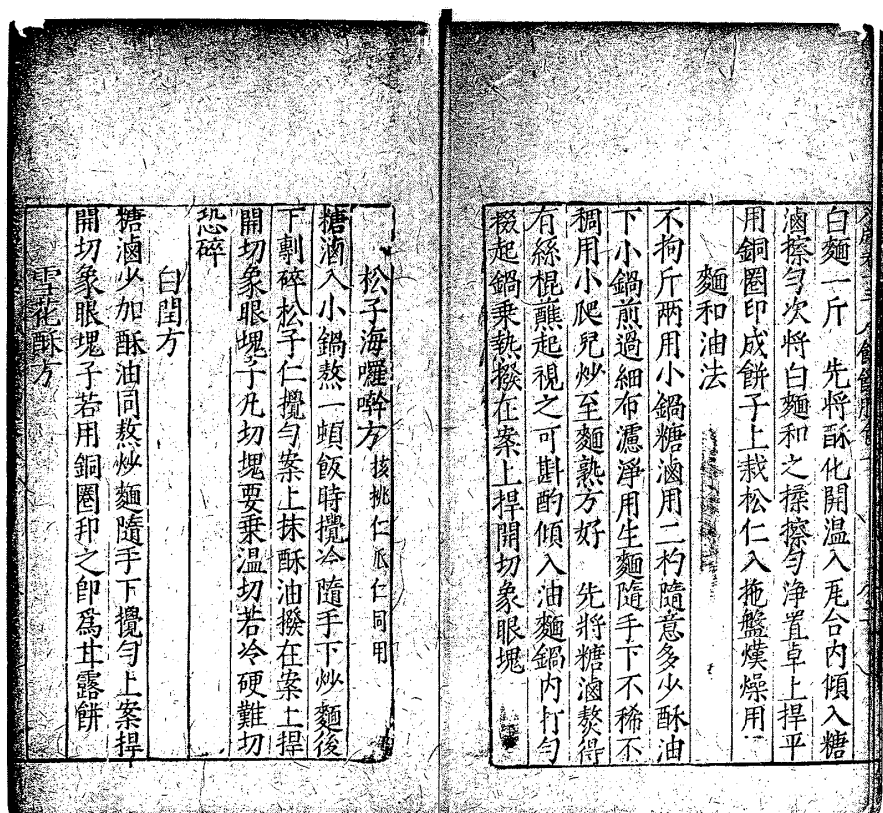 白麵一斤　先將酥化開温入瓦合内傾入糖
滷擦勻次將白麵和之揉擦勻淨置卓上捍平
用銅圈印成餅子上栽松仁入拖盤熯燥用
麵和油法
不拘斤兩用小鍋糖滷用二杓隨意多少酥油
下小鍋煎過細布濾淨用生麵隨手下不稀不
稠用小爬兒炒至麵熟方好　先將糖滷熬得
有絲棍蘸起視之可斟酌傾入油麵鍋内打勻
掇起鍋乗熱撥在案上捍開切象眼塊
松子海囉𠹌方核桃仁瓜仁同用
糖滷入小鍋熬一頓飯時攪冷隨手下炒麵後
下剸碎松子仁攪勻案上抹酥油撥在案上捍
開切象眼塊子凡切塊要乗温切若冷硬難切
恐碎
白閏方
糖滷少加酥油同熬炒麵隨手下攪勻上案捍
開切象眼塊子若用銅圈印之即爲甘露餅
雪花酥方